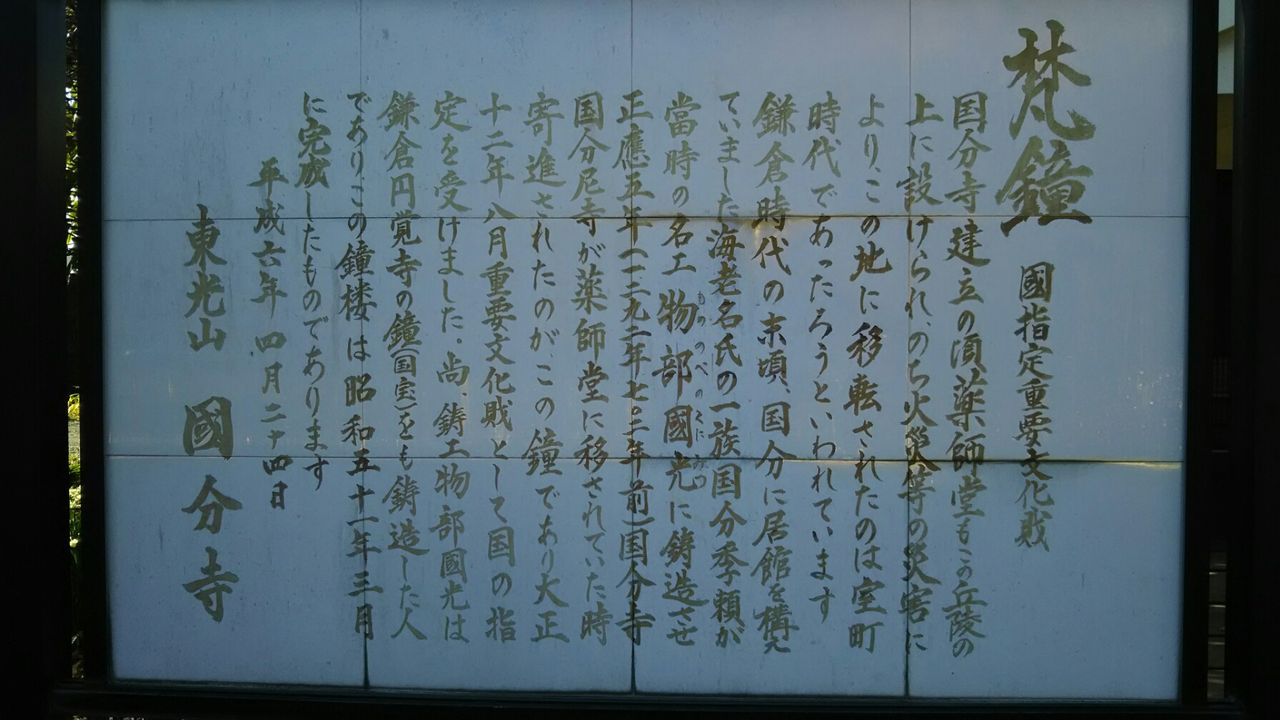 梵鐘 國指定重要文化財
国分寺建立の頃薬師堂もこの丘陵の
上に設けられ、のち火災等の災害に
より、この地に移転されたのは室町
時代であったろうといわれています
鎌倉時代の末頃、国分に居館を構え
ていました海老名氏の一族国分季頼が
當時の名工物部國光に鋳造させ
もののべのくにみつ
正應五年(一二九二年七〇二年前)国分寺
国分尼寺が薬師堂に移されていた時
寄進されたのが、この鐘であり大正
十二年八月重要文化財として国の指
定を受けました。尚、鋳工物部國光は
鎌倉円覚寺の鐘(国宝)をも鋳造した人
でありこの鐘楼は昭和五十一年三月
に完成したものであります
平成六年四月二十四日
東光山 國分寺